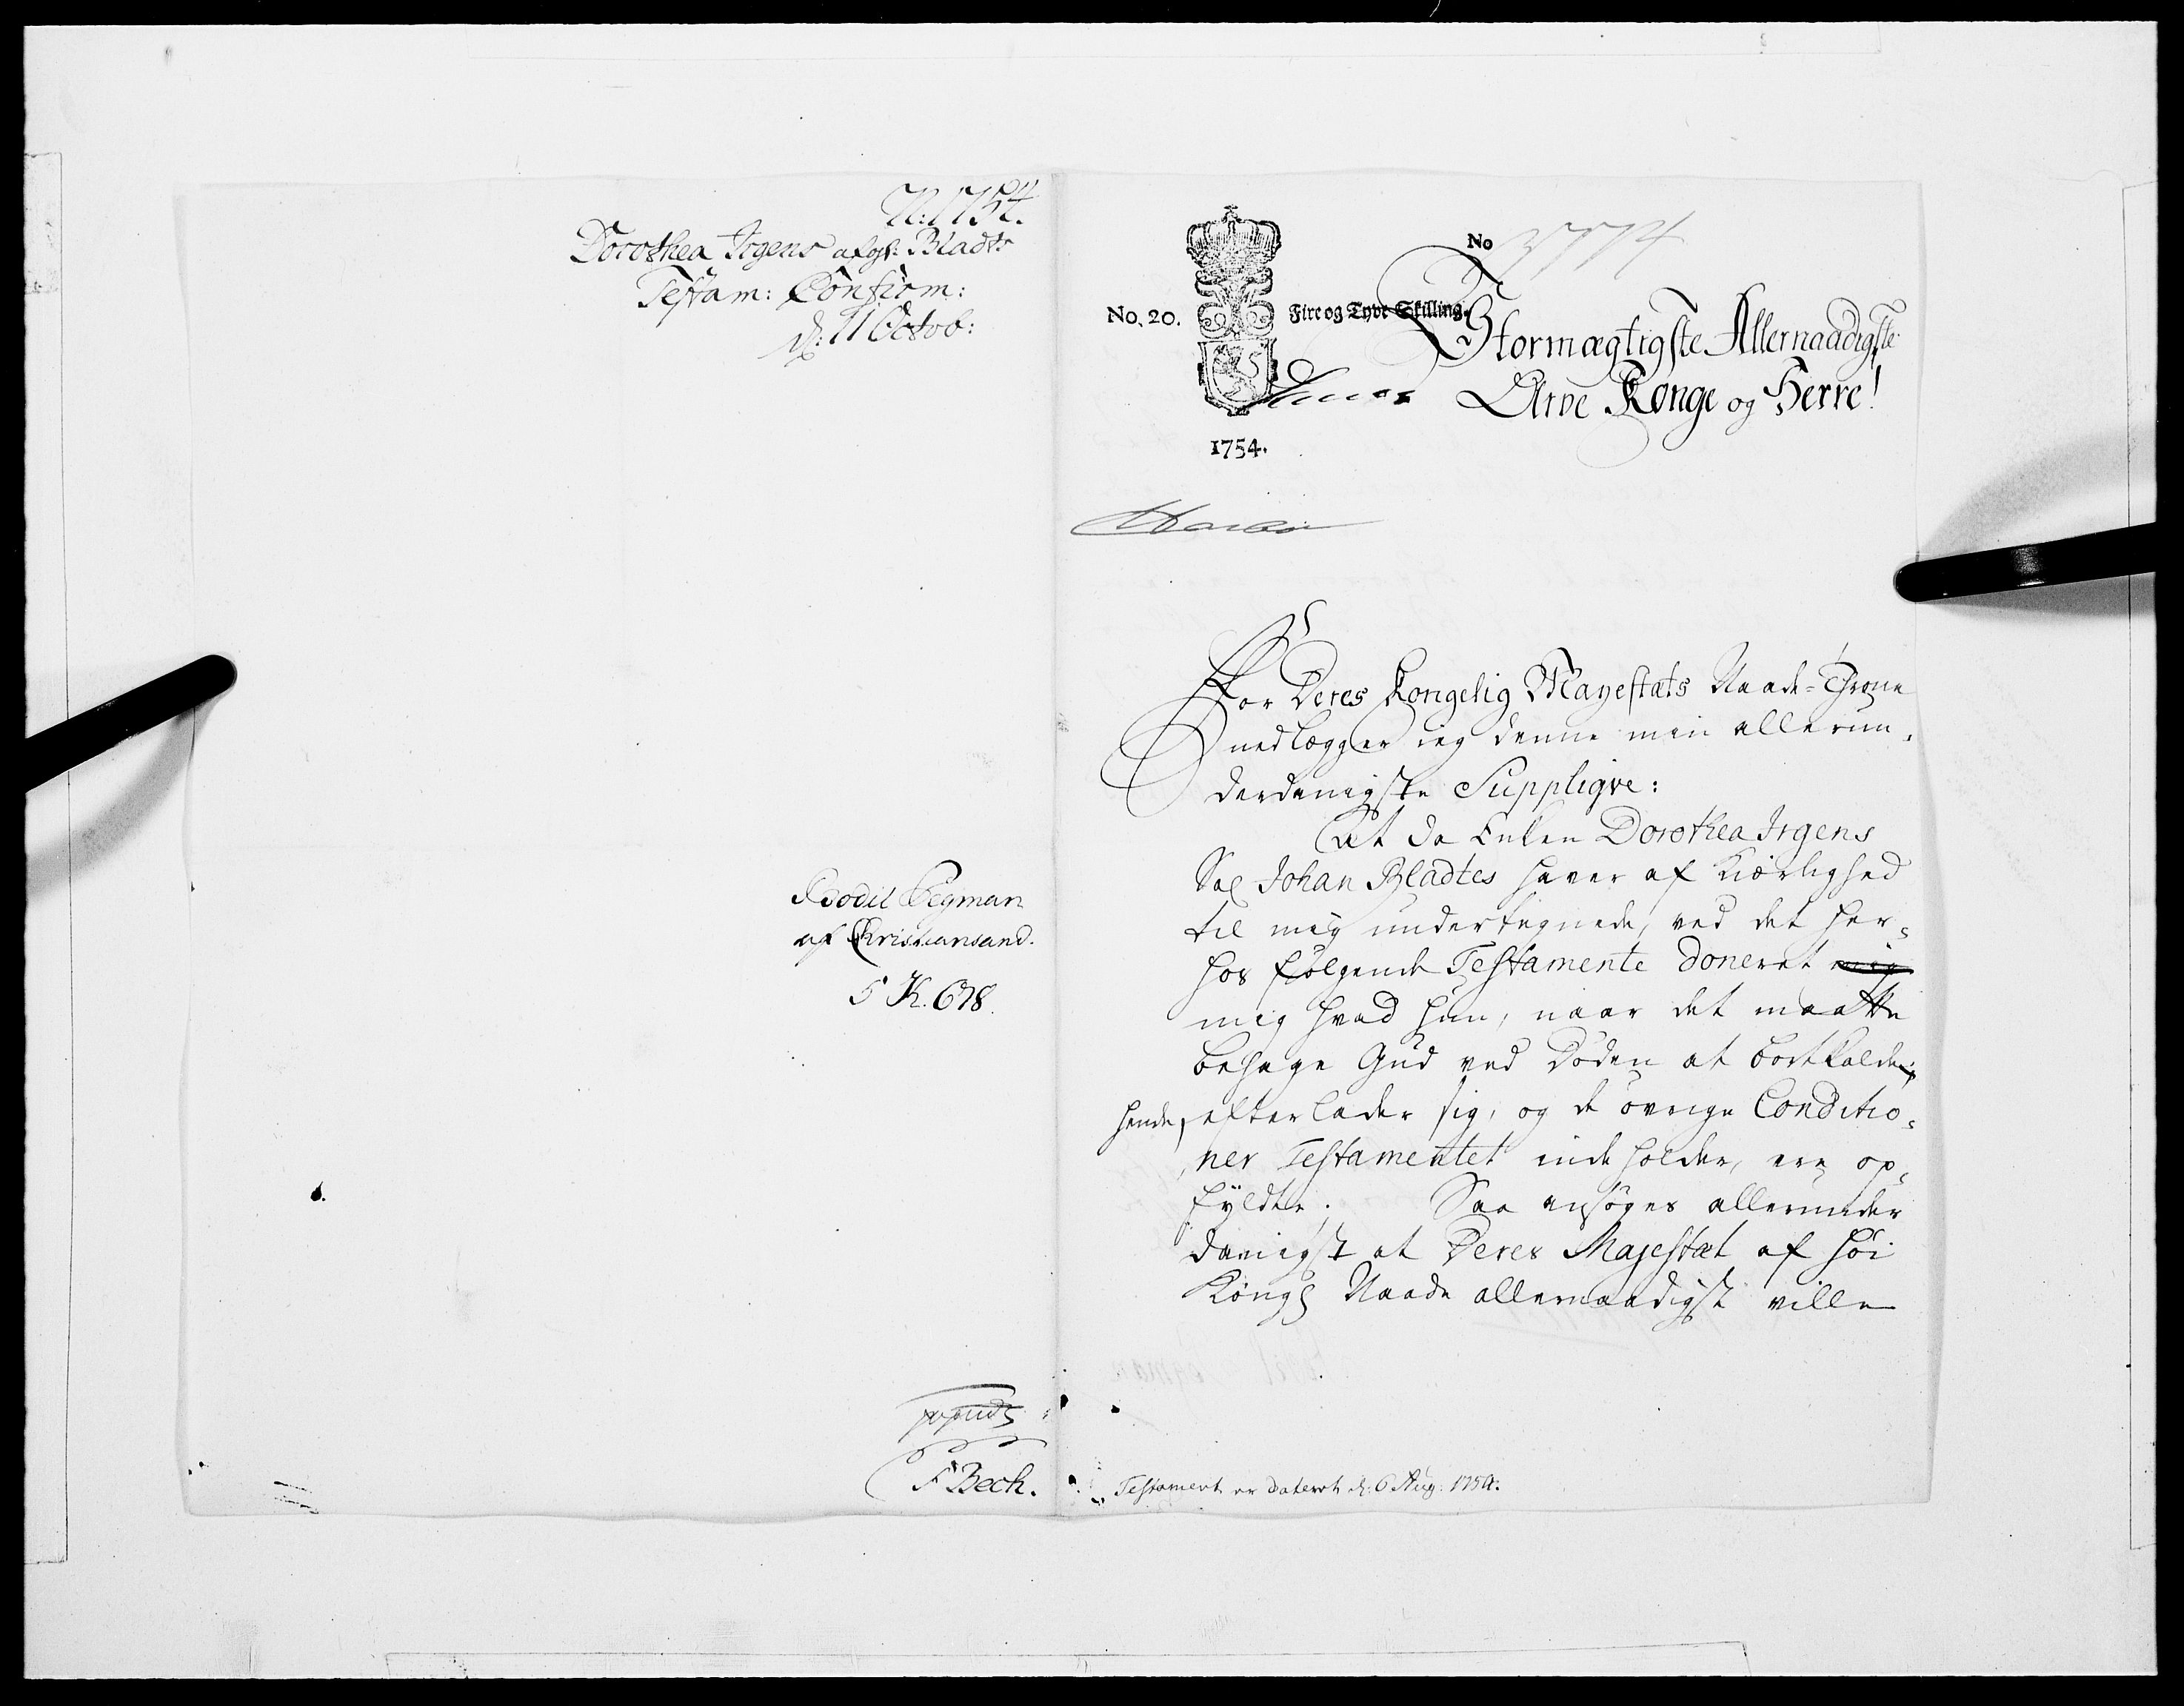 N: 1754.
Dorothea Irgens afg: Bladts
Testam: Confirm:
d: 11 Octob:
Bodil Segman
af Christiansand.
5 K. 678.
F Bech.
No
No. 20.
Fire og Tyve Skilling.
1754.
Stormægtigste Allernaadigste
Arve Konge og Herre!
For Deres Kongelig Mayestæts Naade-Throne
nedlægger ieg denne min allerun-
derdanigste Suppliqve:
At da Enken Dorothea Irgens
Sal Johan Bladtes haver af Kiærlighed
til mig undertegnede, ved det her-
hos følgende Testamente doneret mig
mig hvad hun, naar det maatte
behage Gud ved Døden at bortkalde
hende, efterlader sig, og de øvrige Conditio-
ner Testamentet indeholder, ere op-
fyldte. Saa ansøges allerunder
danigst at Deres Majestæt af høi
Kongl Naade allernaadigst ville
Testament er dateret d: 6 Aug: 1754.